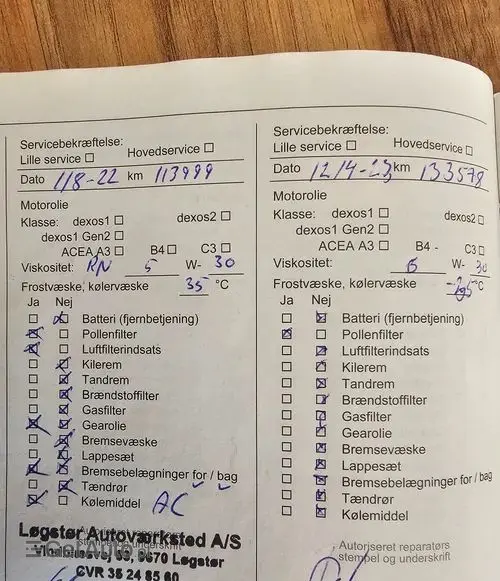 Servicebekræftelse:
Lille service ☐ Hovedservice ☐
Dato 1/8-22 km 113999
Motorolie
Klasse: dexos1 ☐ dexos2 ☐
dexos1 Gen2 ☐
ACEA A3 ☐ B4 ☐ C3 ☐
Viskositet: RN 5 W- 30
Frostvæske, kølervæske 35 °C
Ja Nej
☐ ☒ Batteri (fjernbetjening)
☒ ☐ Pollenfilter
☒ ☐ Luftfilterindsats
☐ ☒ Kilerem
☐ ☒ Tandrem
☐ ☒ Brændstoffilter
☐ ☒ Gasfilter
☒ ☐ Gearolie
☐ ☒ Bremsevæske
☐ ☒ Lappesæt
☒ ☐ Bremsebelægninger for / bag
☐ ☒ Tændrør
☒ ☐ Kølemiddel AC
Autoriseret reparatørs
stempel og underskrift
Løgstør Autoværksted A/S
9670 Løgstør
CVR 35 24 85 60
Servicebekræftelse:
Lille service ☐ Hovedservice ☐
Dato 12/4-23 km 133578
Motorolie
Klasse: dexos1 ☐ dexos2 ☐
dexos1 Gen2 ☐
ACEA A3 ☐ B4 - C3 ☐
Viskositet: W- 30
Frostvæske, kølervæske °C
Ja Nej
☐ ☒ Batteri (fjernbetjening)
☒ ☐ Pollenfilter
☐ ☒ Luftfilterindsats
☐ ☒ Kilerem
☐ ☒ Tandrem
☐ ☒ Brændstoffilter
☐ ☒ Gasfilter
☐ ☒ Gearolie
☐ ☒ Bremsevæske
☐ ☒ Lappesæt
☐ ☒ Bremsebelægninger for / bag
☐ ☒ Tændrør
☐ ☒ Kølemiddel
Autoriseret reparatørs
stempel og underskrift